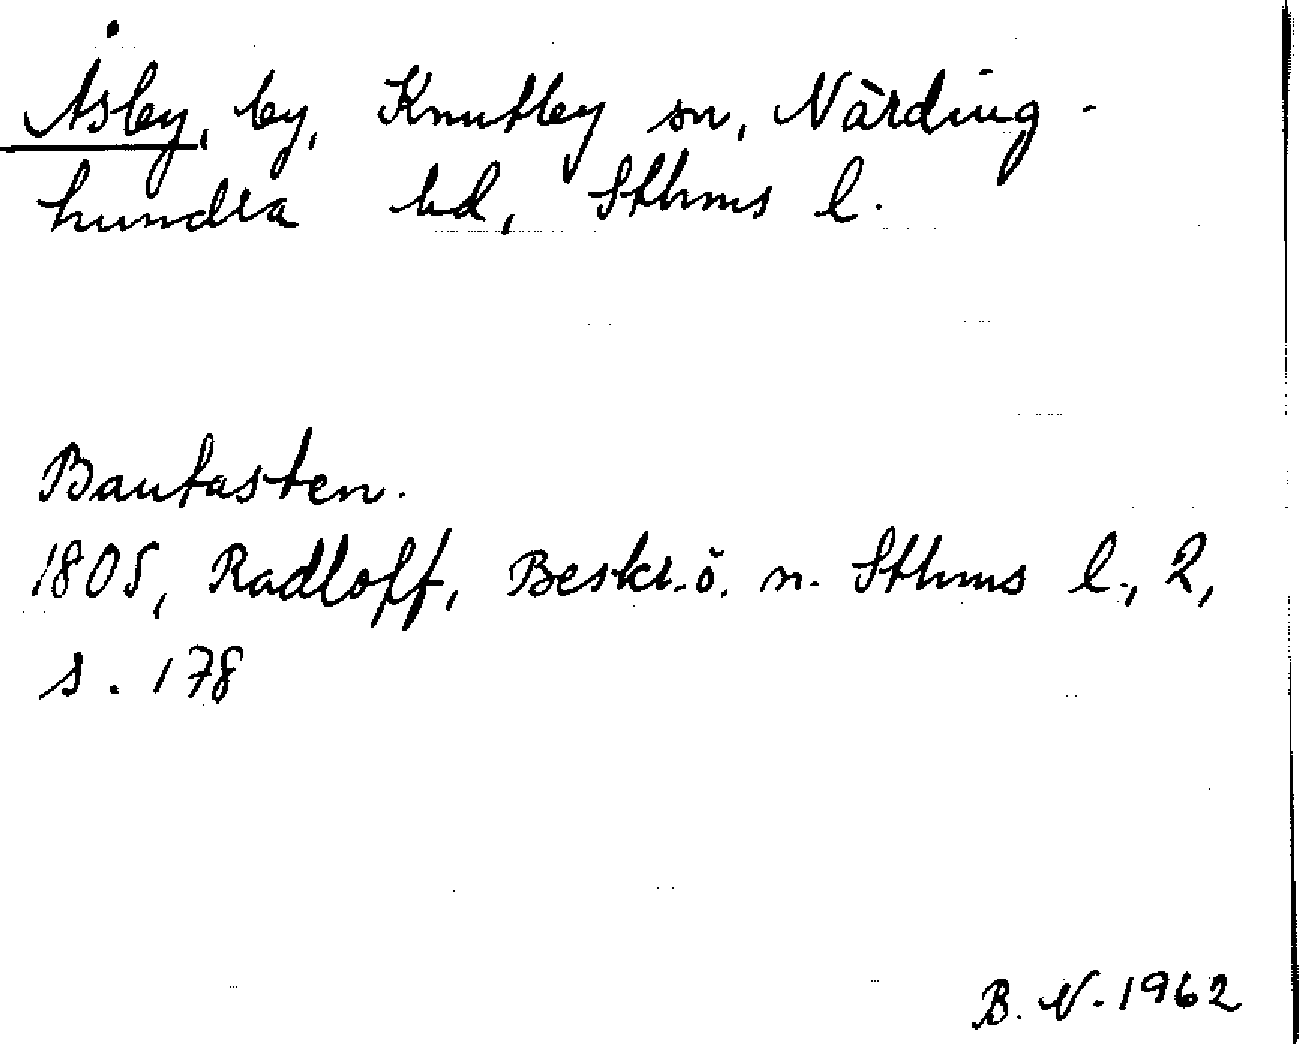 Åsby, by, Knutby sn, Närding-
hundra hd, Sthms l.
Bautasten.
1805, Radloff, Beskr. ö. n. Sthms l., 2,
s. 178
B. N. 1962